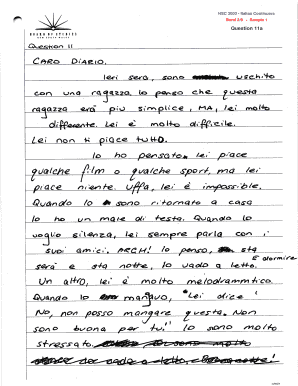 HSC 2003 - Italian Continuers
Band 5/6 - Sample 1
Question 11a
BOARD OF STUDIES
NEW SOUTH WALES
Question 11
CARO DIARIO,
Ieri sera, sono uschito
con una ragazza. Io penso che questa
ragazza era piu simplice, MA, lei molto
differente. Lei é molto difficile.
Lei non ti piace tutto.
Io ho pensato. Lei piace
qualche film o qualche sport, ma lei
piace niente. Uffa, lei é impossible.
Quando Io sono ritornato a casa
Io ho un male di testa. Quando Io
voglio silenza, lei sempre parla con i
suoi amici. ARCH! Io penso, sta
sera e sta notte, Io vado a letto. E dormire
Un altro, lei é molto melodrammtico.
Quando Io mangavo, "Lei dice'
No, non posso mangare questa. Non
sono buona per tu!" Io sono molto
stressato.